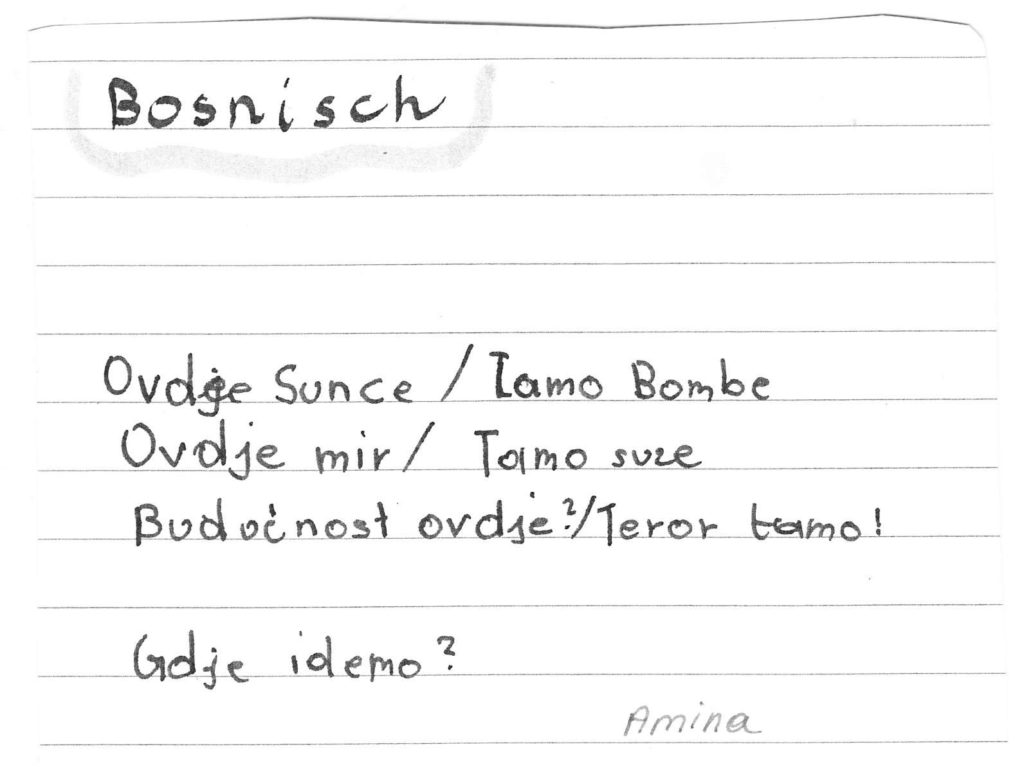 Bosnisch
Ovdje Sunce / Tamo Bombe
Ovdje mir / Tamo suze
Budućnost ovdje?/Teror tamo!
Gdje idemo?
Amina